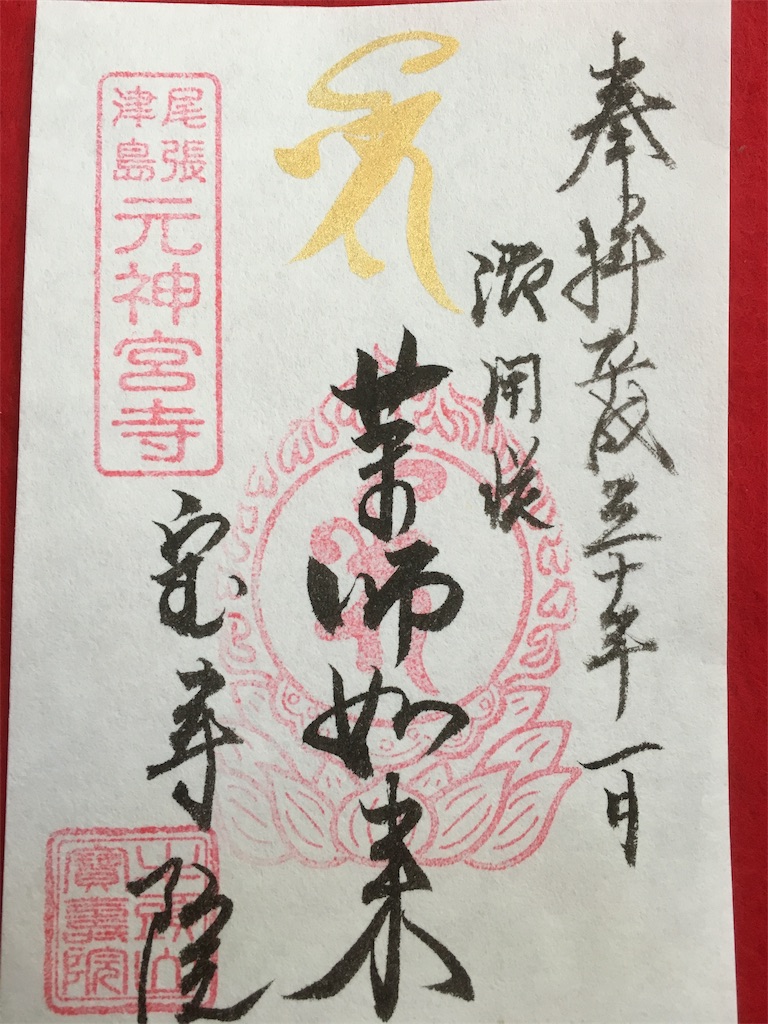 奉拝 平成三十年一月
薬師如来
尾張
津島
元神宮寺
宝寿院
牛頭山
寶壽院